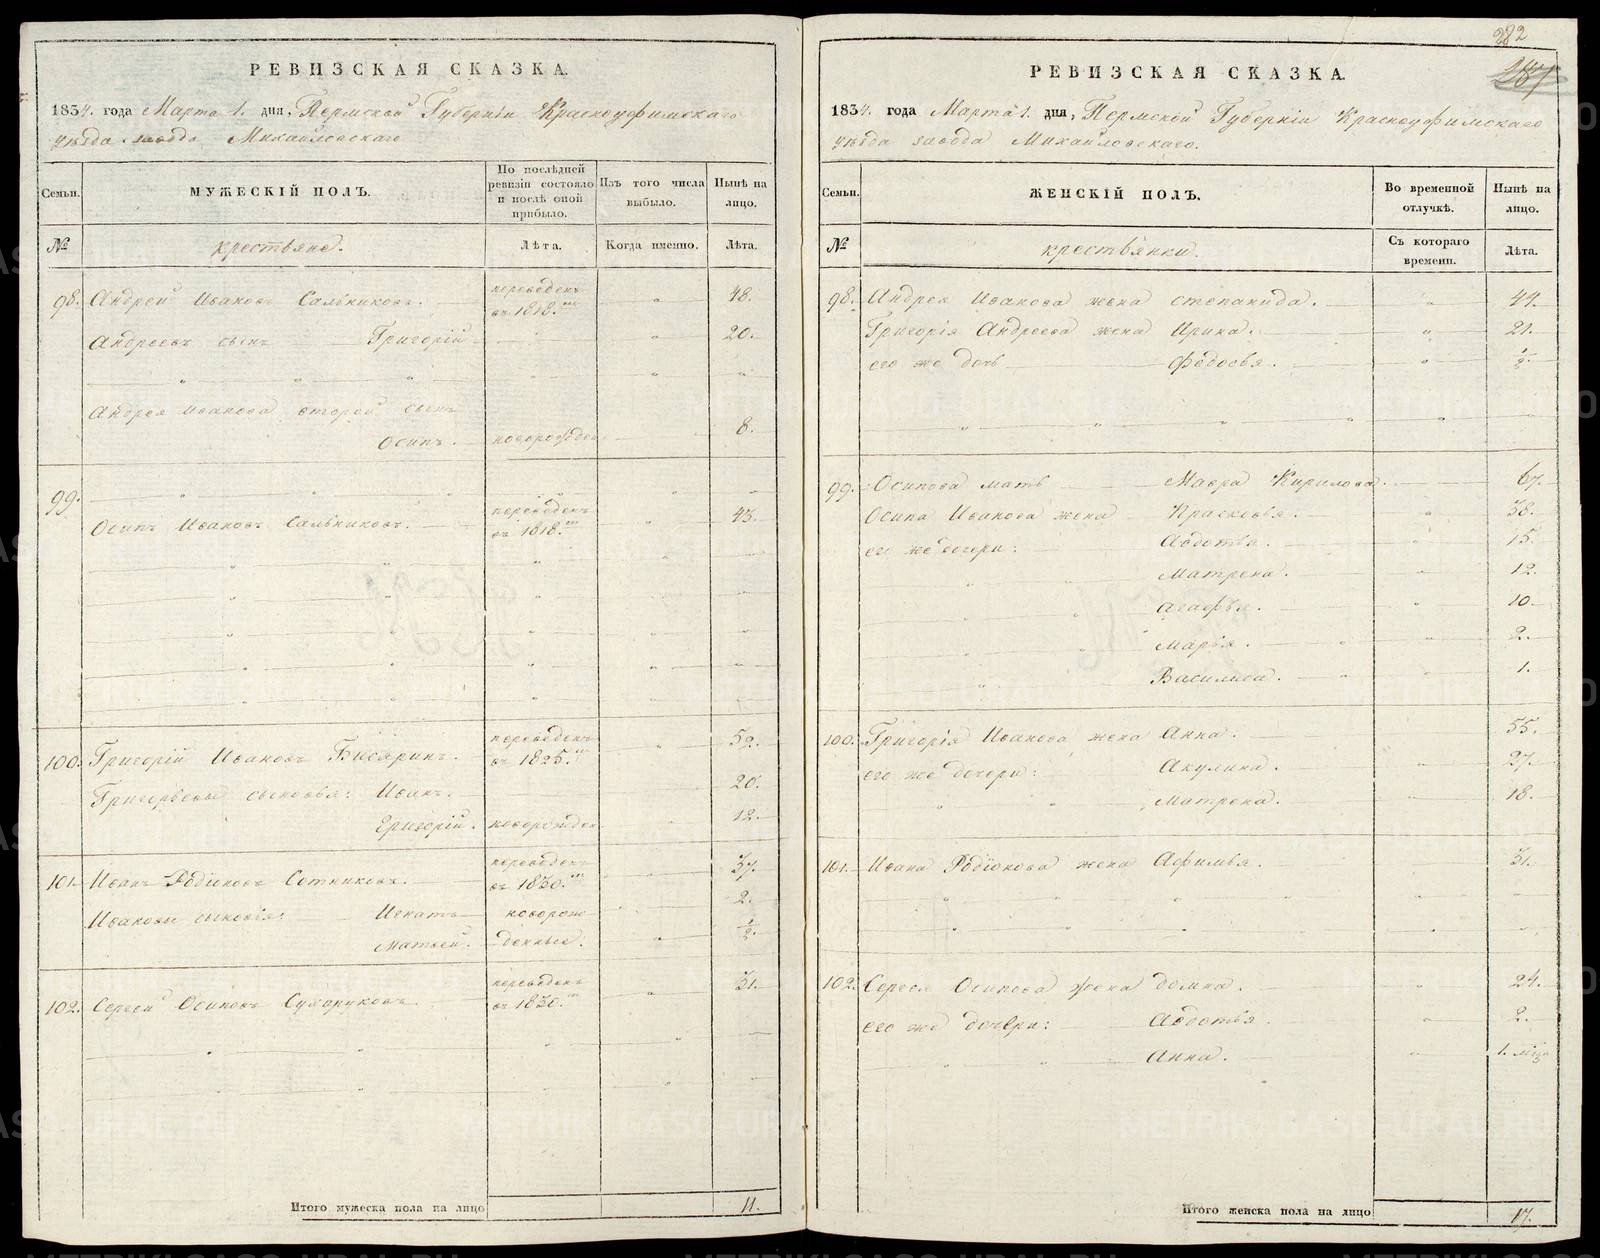 РЕВИЗСКАЯ СКАЗКА.
1834. года Марта 1. дня, Пермской Губерніи Красноуфимскаго
уѣзда завода Михайловскаго
Семьи.
МУЖЕСКІЙ ПОЛЪ.
По послѣдней ревизіи состояло и послѣ оной прибыло.
Изъ того числа выбыло.
Нынѣ на лицо.
№
крестьяне.
Лѣта.
Когда именно.
Лѣта.
98. Андрей Ивановъ Сальниковъ. переведенъ въ 1818.мъ " 48.
Андреевъ сынъ Григорій " 20.
Андрея Иванова второй сынъ
Осипъ. новорожден 8.
99.
Осипъ Ивановъ Сальниковъ. переведенъ въ 1818.мъ " 43.
100. Григорій Ивановъ Бисяринъ. переведенъ въ 1825.мъ " 59.
Григорьевы сыновья: Иванъ. 20.
Григорій. новорожден. 12.
101. Иванъ Родіоновъ Сотниковъ. переведенъ въ 1830.мъ " 37.
Ивановы сыновья: Игнатъ новорож- 2.
Матвей. денные. " ½.
102. Сергей Осиповъ Сухоруковъ переведенъ въ 1830.мъ " 31.
Итого мужеска пола на лицо 11.
282
РЕВИЗСКАЯ СКАЗКА.
1834. года Марта 1. дня, Пермской Губерніи Красноуфимскаго
уѣзда завода Михайловскаго.
Семьи.
ЖЕНСКІЙ ПОЛЪ.
Во временной отлучкѣ.
Нынѣ на лицо.
№
крестьянки.
Съ котораго времени.
Лѣта.
98. Андрея Иванова жена степанида. " 44.
Григорія Андреева жена Ирина. " 21.
его же дочь Федосья. " ½
99. Осипова мать Мавра Кирилова. 67.
Осипа Иванова жена Прасковья. " 38.
его же дочери: Авдотья. " 15.
Матрена. " 12.
Агафья. " 10.
Марья. " 2.
Василиса. " 1.
100. Григорія Иванова жена Анна. 55.
его же дочери: Акулина. " 27.
Матрена. " 18.
101. Ивана Родіонова жена Афимья. " 31.
102. Сергея Осипова жена домна. " 24.
его же дочери: Авдотья. " 2.
Анна. " 1. мѣся
Итого женска пола на лицо 17.
METRIKI.GASO-URAL.RU